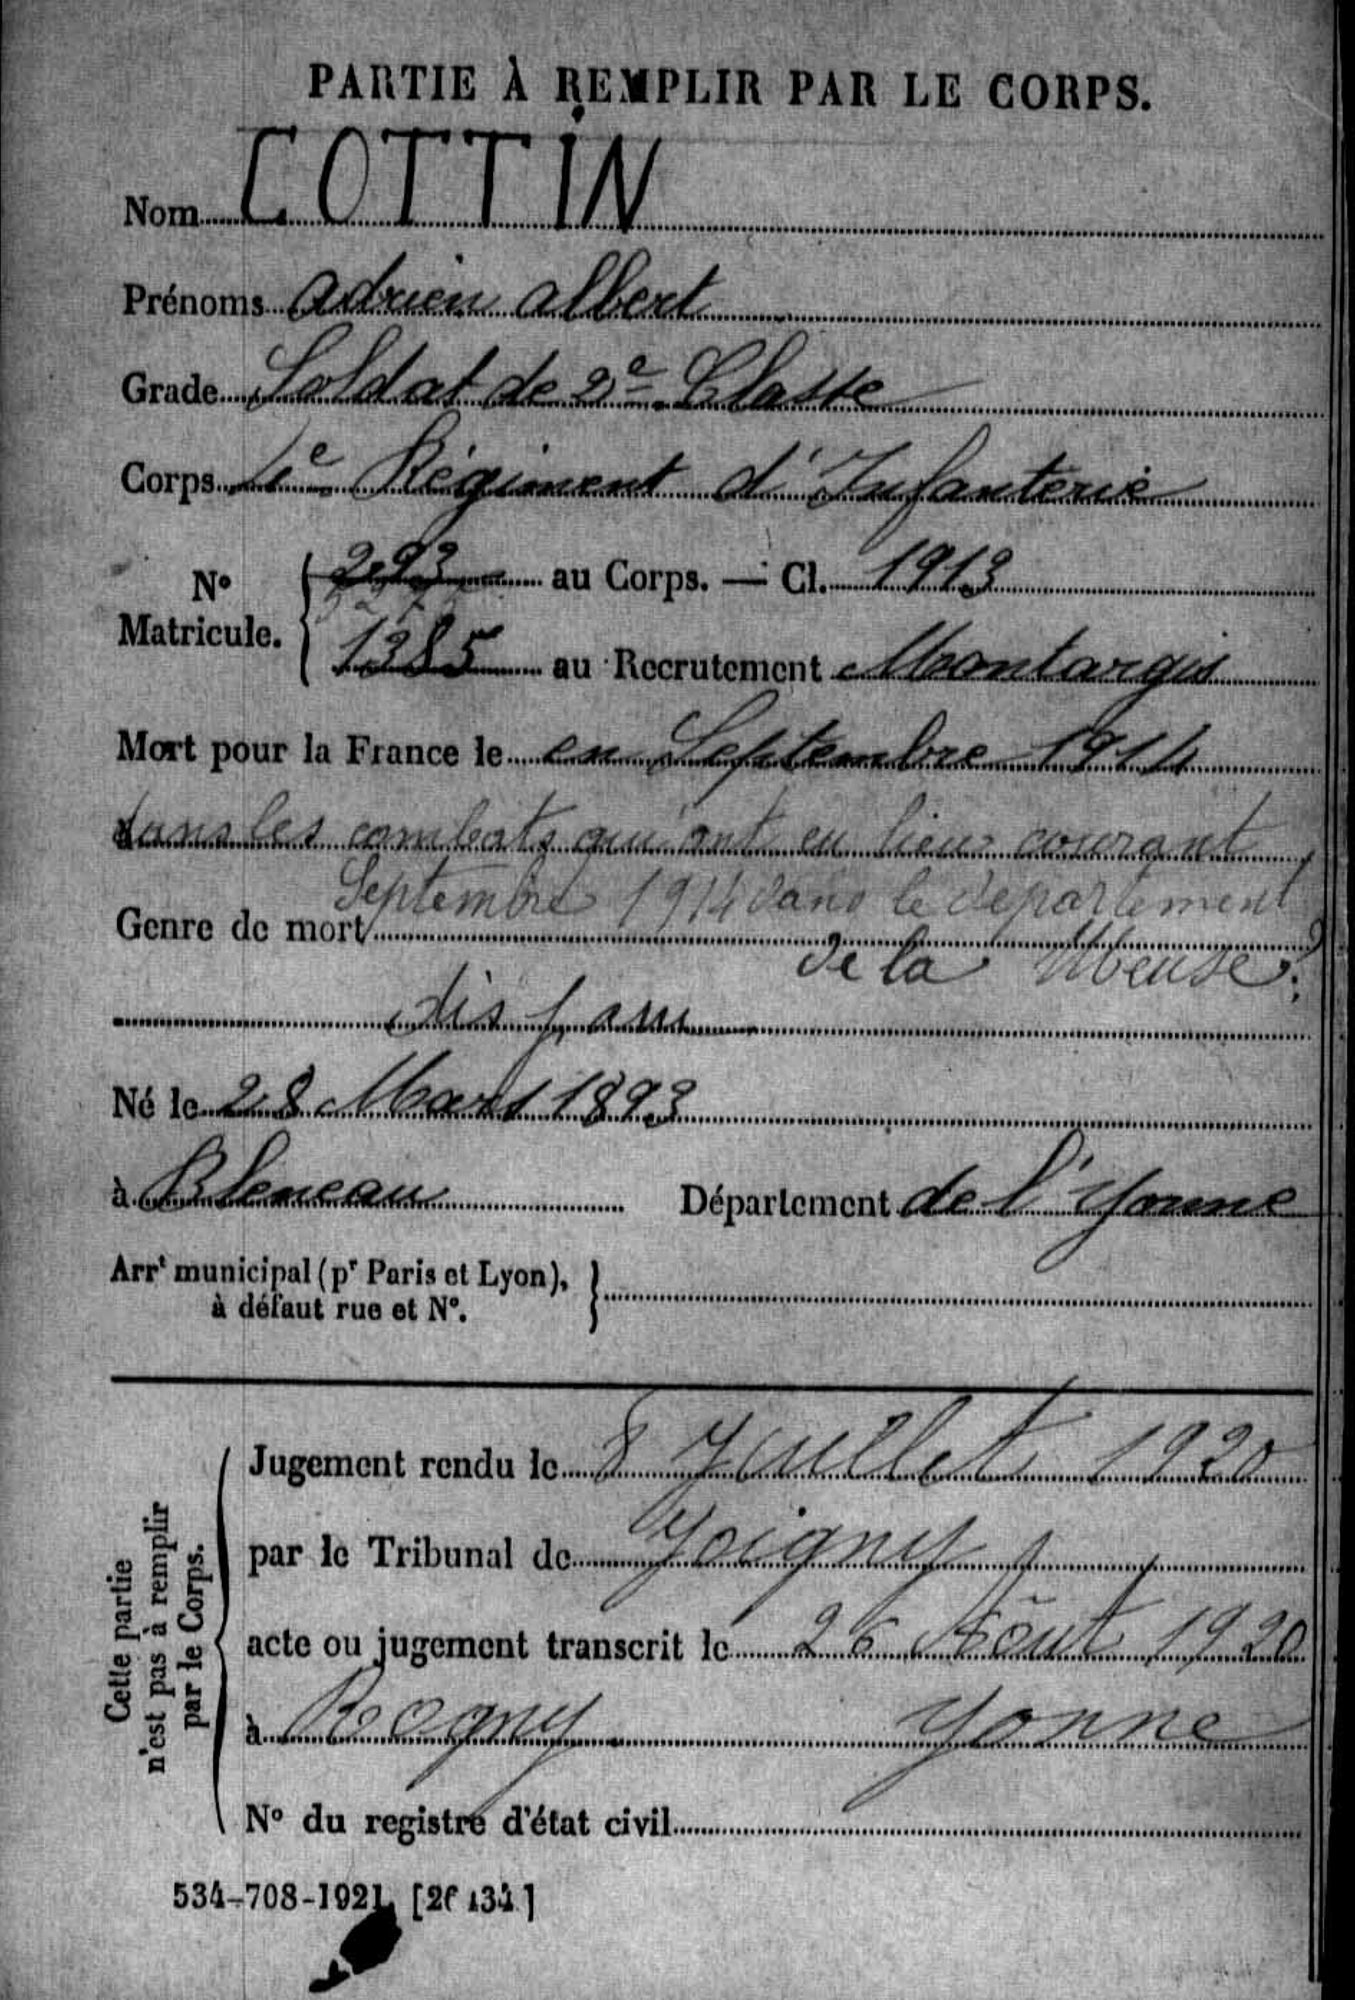 PARTIE À REMPLIR PAR LE CORPS.
Nom COTTIN
Prénoms Adrien Albert
Grade Soldat de 2e Classe
Corps 1e Régiment d'Infanterie
No Matricule. { 293 au Corps. — Cl. 1913
1385 au Recrutement Montargis
Mort pour la France le en Septembre 1914
dans les combats qui ont eu lieu courant
Septembre 1914 dans le département
Genre de mort
de la Meuse.
disparu
Né le 28 Mars 1893
à Bleneau Département de l'Yonne
Arrt municipal (pr Paris et Lyon),
à défaut rue et No.
Cette partie
n'est pas à remplir
par le Corps.
Jugement rendu le 8 Juillet 1920
par le Tribunal de Joigny
acte ou jugement transcrit le 26 Août 1920
à Rogny Yonne
No du registre d'état civil
534-708-1921